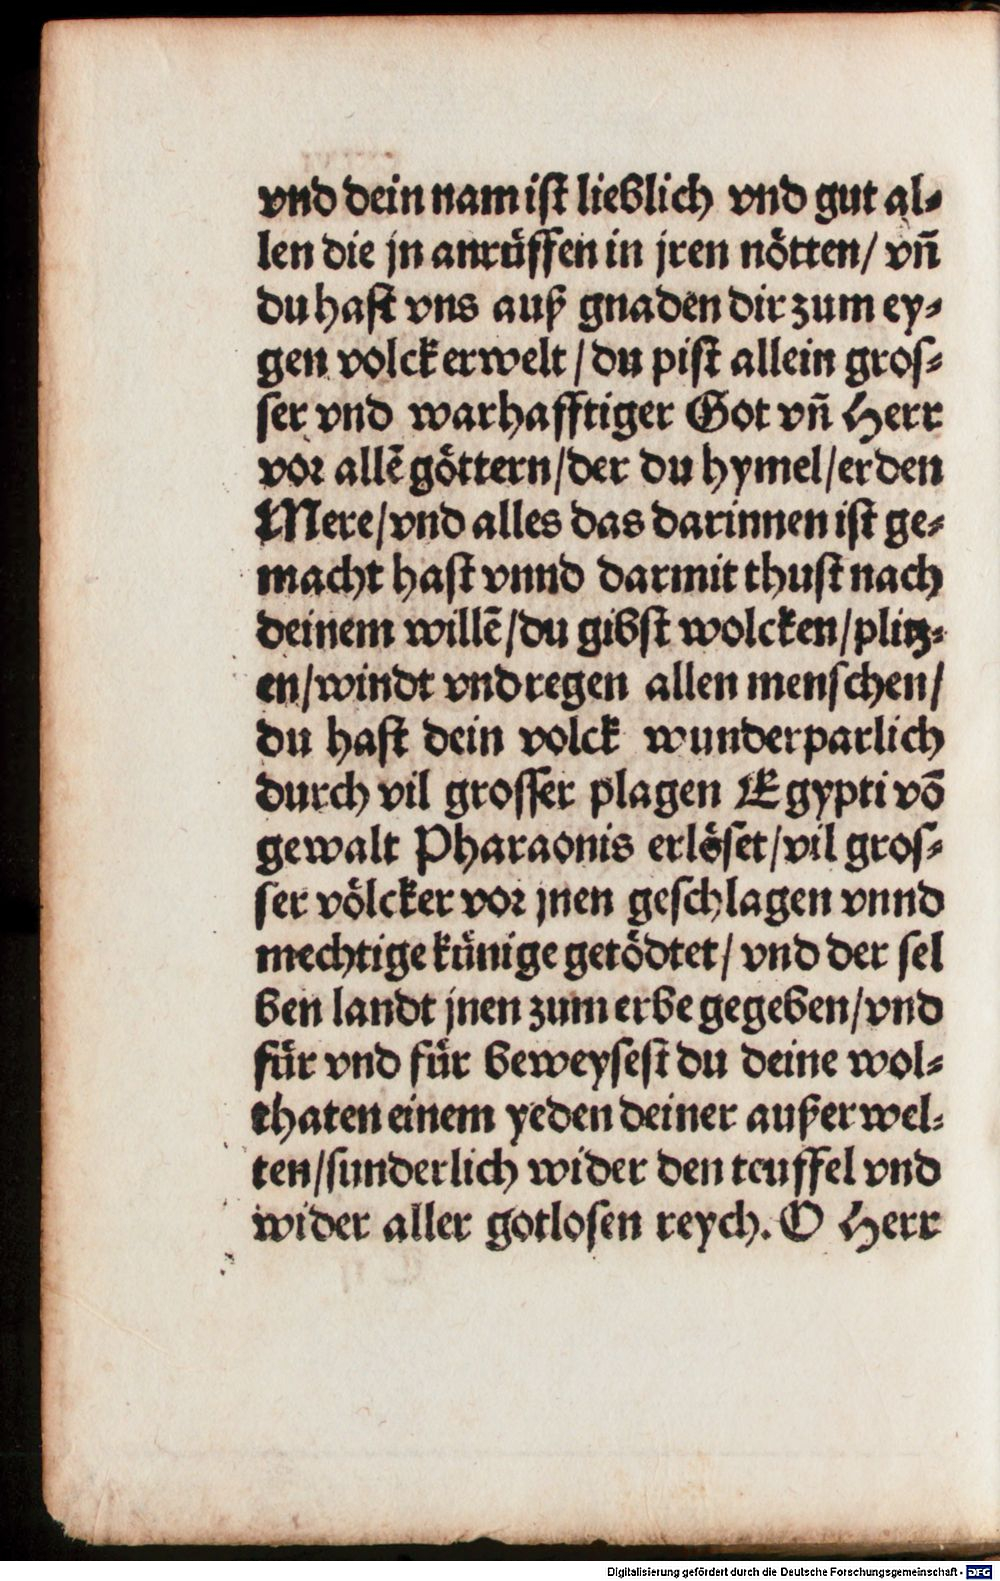 vnd dein nam ist lieblich vnd gut al⸗
len die jn anrüffen in jren nötten/ vn̄
du hast vns auß gnaden dir zum ey⸗
gen volck erwelt / du pist allein gros⸗
ser vnd warhafftiger Got vn̄ Herr
vor allē göttern/der du hymel/erden
Mere/vnd alles das darinnen ist ge⸗
macht hast vnnd darmit thust nach
deinem willē/du gibst wolcken/plitz⸗
en/windt vnd regen allen menschen/
du hast dein volck wunderparlich
durch vil grosser plagen Egypti vō
gewalt Pharaonis erlöset/vil gros⸗
ser völcker vor jnen geschlagen vnnd
mechtige künige getödtet/ vnd der sel
ben landt jnen zum erbe gegeben/vnd
für vnd für beweysest du deine wol⸗
thaten einem yeden deiner außerwel⸗
ten/sunderlich wider den teuffel vnd
wider aller gotlosen reych. O Herr
Digitalisierung gefördert durch die Deutsche Forschungsgemeinschaft - DFG